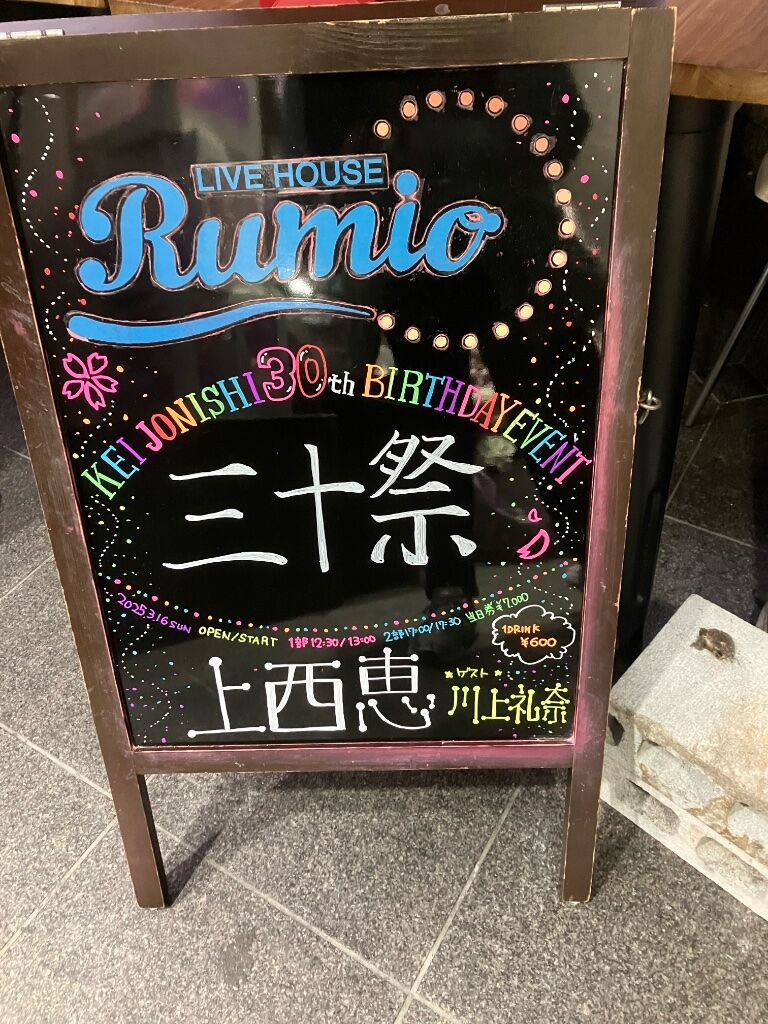 LIVE HOUSE
Rumio
KEI JONISHI 30th BIRTHDAY EVENT
三十祭
2025.3.16 SUN OPEN/START 1部12:30/13:00 2部17:00/17:30 当日券¥7,000
1DRINK
¥600
上西恵
★ゲスト★
川上礼奈